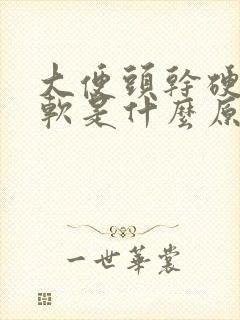 大便頭幹硬
軟是什麼原
一世華裳